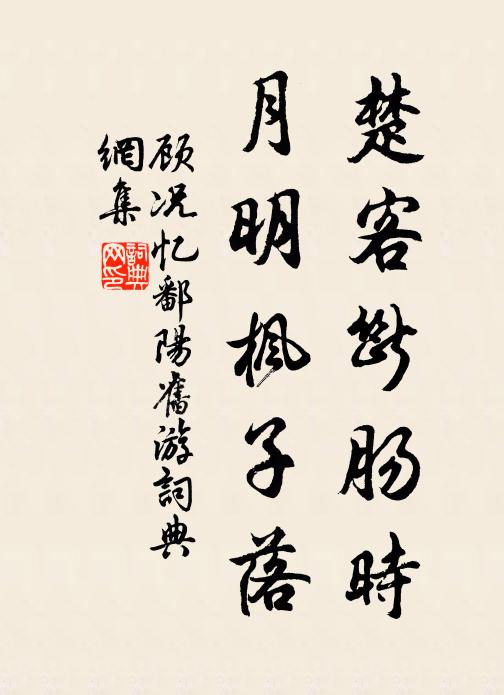 楚客断肠時
月明楓子落
顾况忆鄱陽舊游詞典
網集
詞典網印